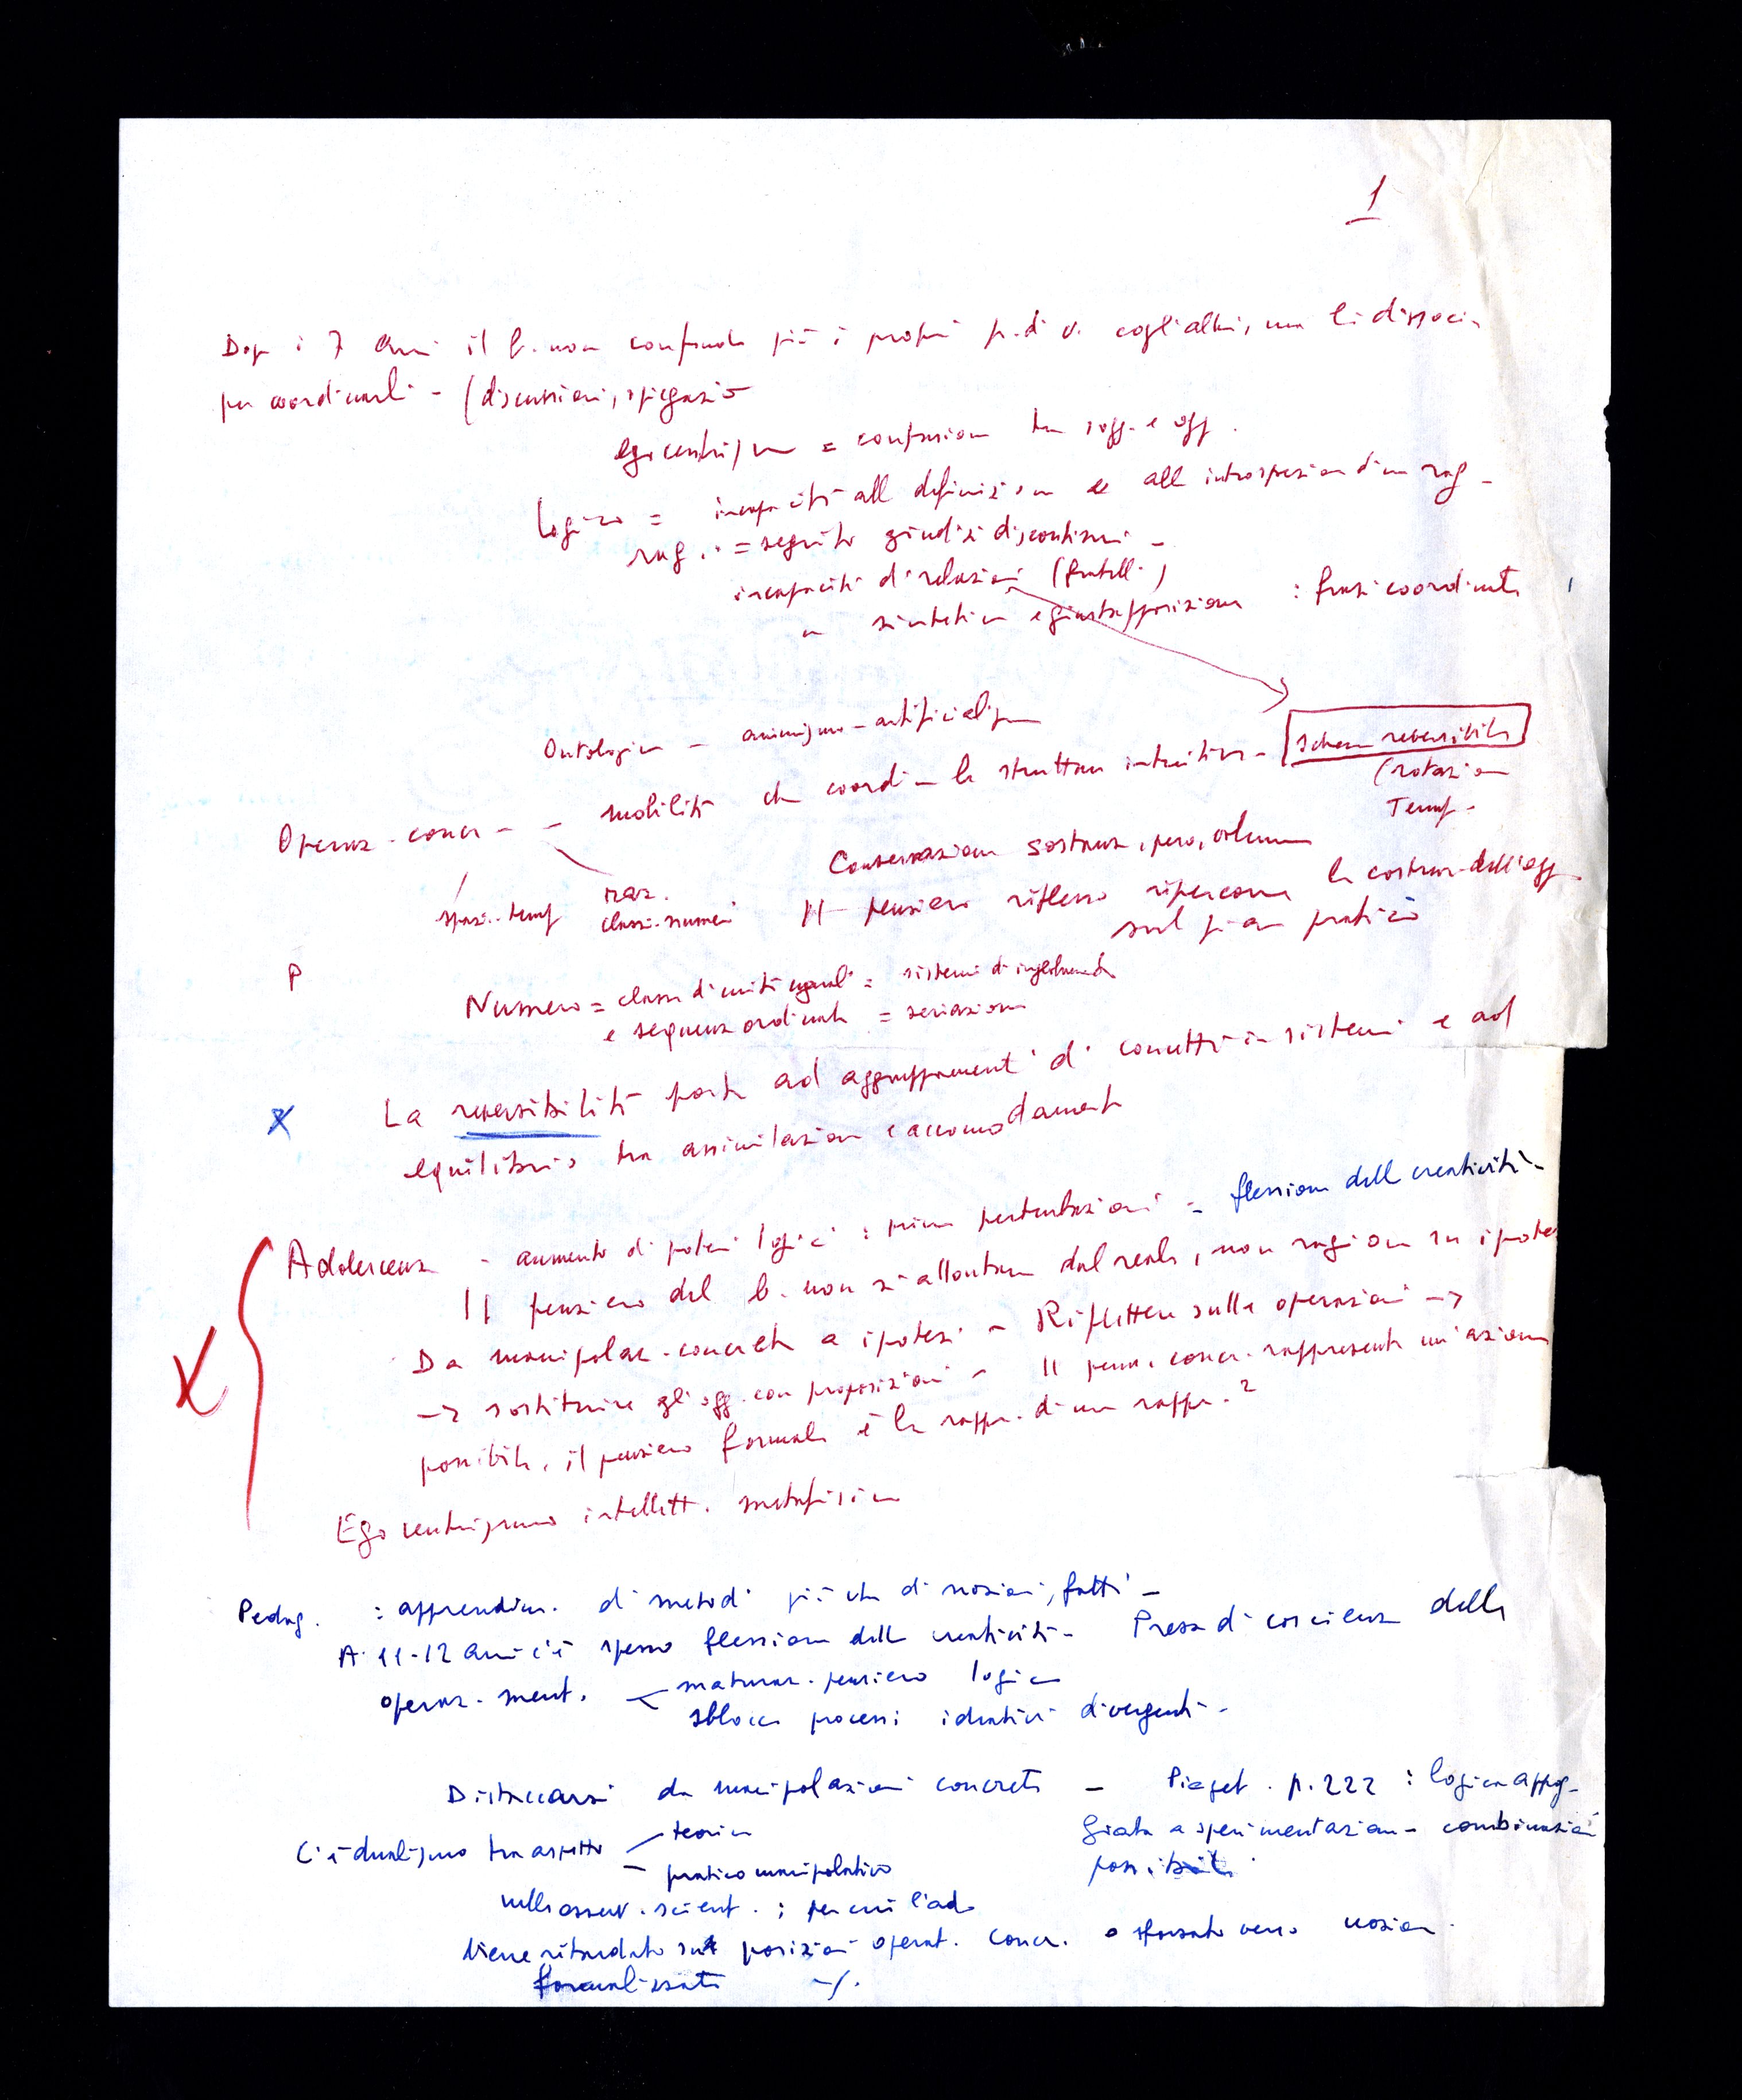 1
Dopo i 7 anni il b. non confonde più i propri p. di v. cogli altri, ma li dissocia
per coordinarli - (discussioni, spiegazio
egocentrismo = confusione tra sogg. e ogg.
Logico = incapacità alla definizione e alla introspezione di un rag -
rag. = seguito giudizi discontinui -
incapacità di relazioni (fratelli)
" sintetica e giustapposizione : frasi coordinate
Ontologica - animismo - artificialismo
Operaz. concr - - mobilità che coordina le strutture intuitive - schema reversibile
(rotazione
Temp -
Conservazione sostanza, peso, volume
spazi. temp
raz.
classi. numeri
Il pensiero riflesso ripercorre la costruz. dell'ogg
sul piano pratico
P
Numero = classe di unità eguali = sistemi di inglobamento
e sequenza ordinata = seriazione
X La reversibilità porta ad aggruppamenti di concetti in sistemi e ad
equilibrio tra assimilazione e accomodamento
Adolescenza - aumento di poteri logici : prime perturbazioni = flessione della creatività -
Il pensiero del b. non si allontana dal reale, non ragiona su ipote
X Da manipolaz. concreta a ipotesi - Riflettere sulle operazioni ->
-> sostituire gli ogg. con proposizioni - Il pens. concr. rappresenta un'azione
possibile, il pensiero formale è la rappr. di una rappr. 2
Egocentrismo intellett. metafisico
Pedag. : apprendim. di metodi più che di nozioni, fatti -
A 11-12 anni c'è spesso flessione della creatività - Presa di coscienza delle
operaz. ment. < maturaz. pensiero logico
sblocca processi ideativi divergenti -
Distaccarsi da manipolazioni concrete - Piaget. p. 222 : logica appog-
giata a sperimentazione - combinazioni
possibili
C'è dualismo tra aspetto teorico
pratico manipolativo
nelle osserv. scient. ; per cui l'ado
viene ritardato su posizioni operat. concr. o sforzato verso nozioni
formalizzate -/.